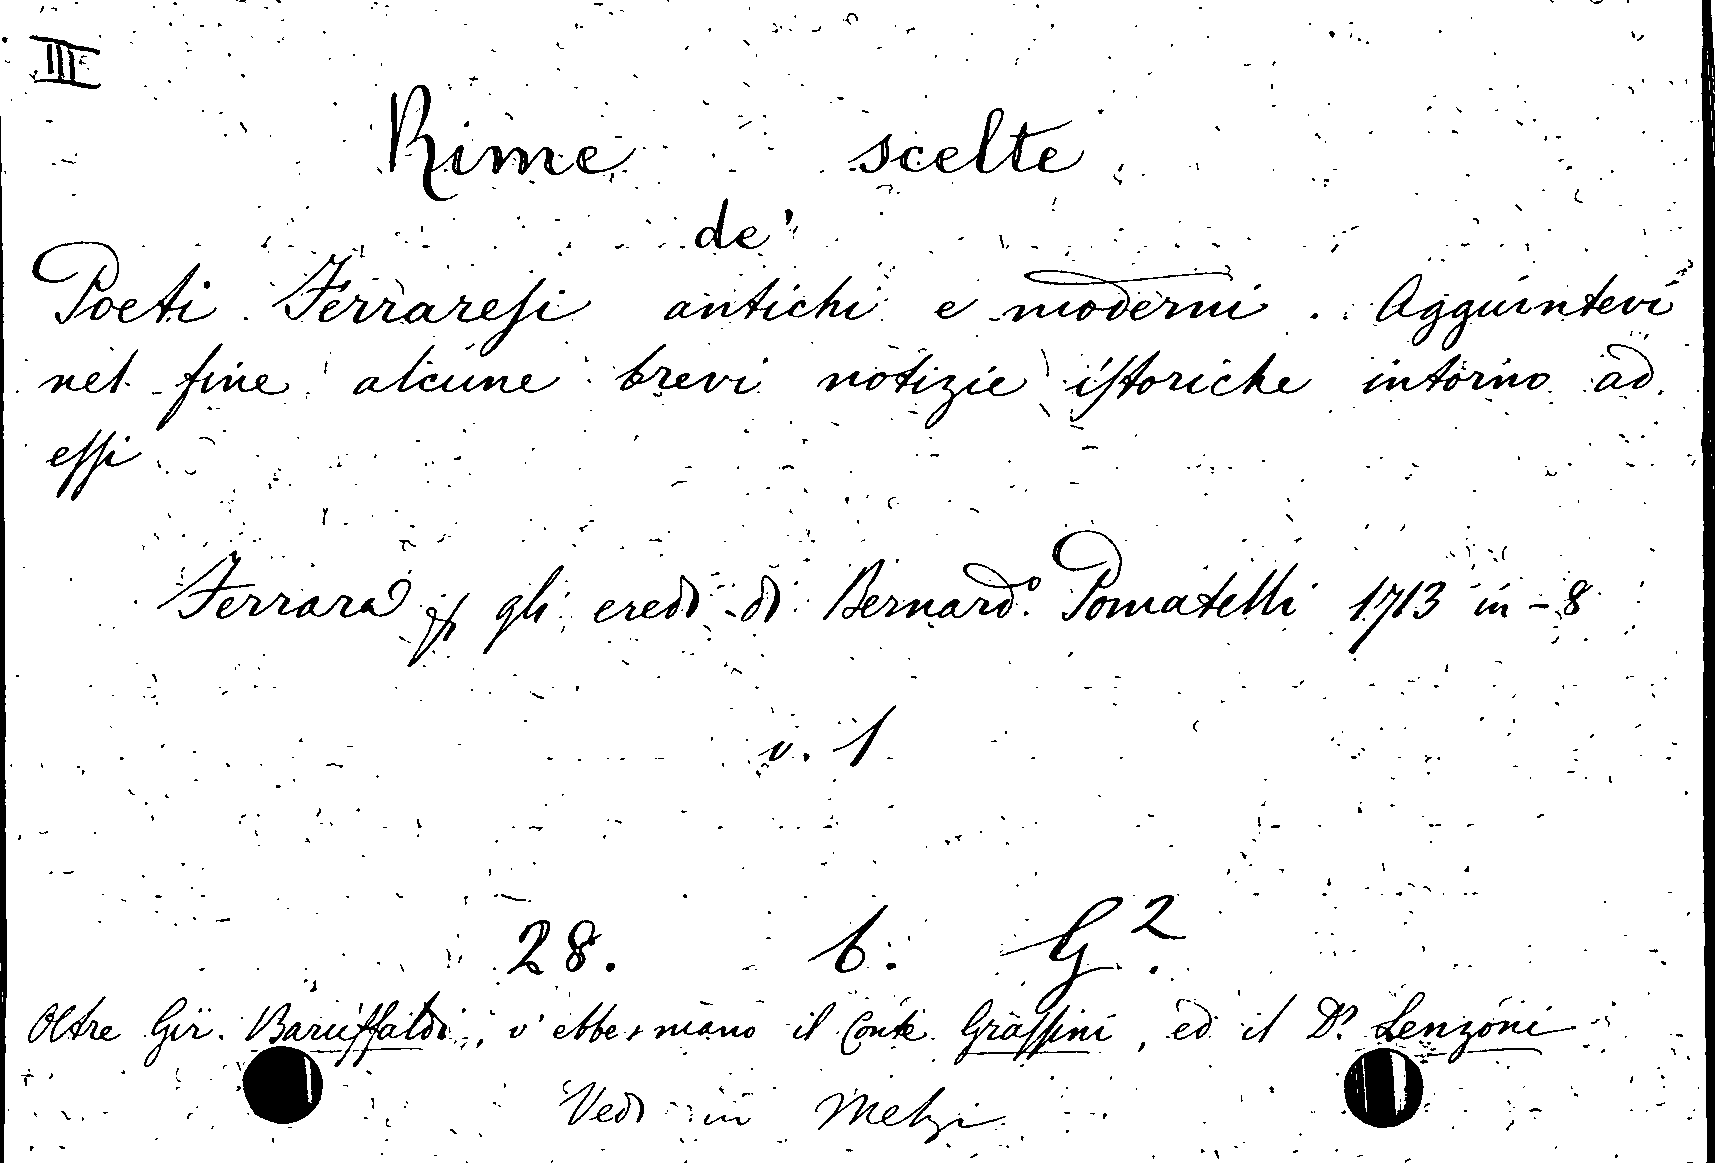 III
Rime scelte
de'
Poeti Ferraresi antichi e moderni. Agguintevi
nel fine alcune brevi notizie istoriche intorno ad
essi
Ferrara p gli eredi di Bernardo. Pomatelli 1713 in-8
v. 1
28. b. G2.
Oltre Gir. Baruffaldi, v'ebbero mano il Conte Grassini, ed il Dr. Lenzoni
Vedi in Melzi